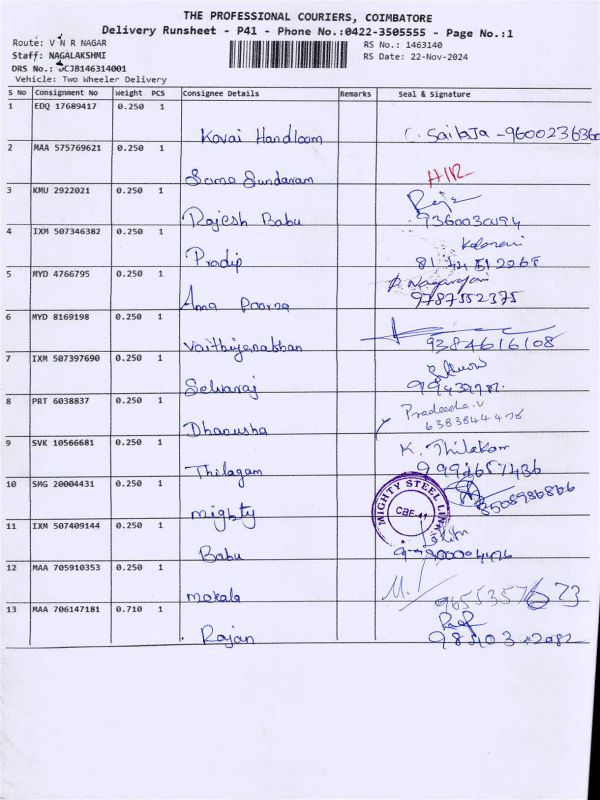 THE PROFESSIONAL COURIERS, COIMBATORE
Delivery Runsheet - P41 - Phone No.:0422-3505555 - Page No.:1
Route: V N R NAGAR
RS No.: 1463140
Staff: NAGALAKSHMI
RS Date: 22-Nov-2024
DRS No.: CJB146314001
Vehicle: Two Wheeler Delivery
S No Consignment No Weight PCS Consignee Details Remarks Seal & Signature
1 EDQ 17689417 0.250 1
Kovai Handloom C. Sailaja - 960023636
2 MAA 575769621 0.250 1
Somo Sundaram H/R
3 KMU 2922021 0.250 1
Rajesh Babu
4 IXM 507346382 0.250 1
Pradip
5 MYD 4766795 0.250 1 P. Nagarajan
Ana Poorna 9787552375
6 MYD 8169198 0.250 1
Vaithiyanakhan 9384616108
7 IXM 507397690 0.250 1
Selvaraj
8 PRT 6038837 0.250 1 Pradeesha.V
Dhanusha 6383844476
9 SVK 10566681 0.250 1 K. Thilakam
Thilagam 9994657436
10 SMG 20004431 0.250 1 MIGHTY STEEL LIN
mighty CBE-41 8508986866
11 IXM 507409144 0.250 1
Babu
12 MAA 705910353 0.250 1
mokala
13 MAA 706147181 0.710 1
Rajan